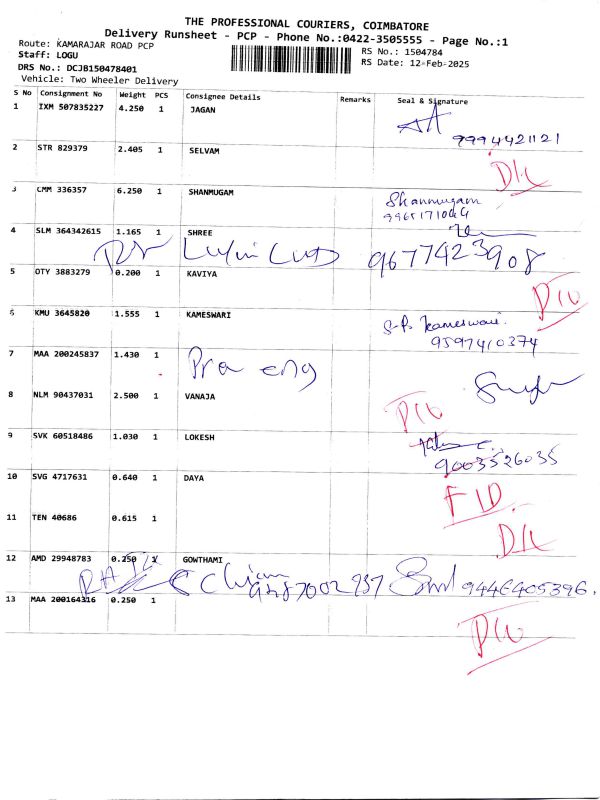 THE PROFESSIONAL COURIERS, COIMBATORE
Delivery Runsheet - PCP - Phone No.:0422-3505555 - Page No.:1
Route: KAMARAJAR ROAD PCP
RS No.: 1504784
Staff: LOGU
RS Date: 12-Feb-2025
DRS No.: DCJB150478401
Vehicle: Two Wheeler Delivery
S No Consignment No Weight PCS Consignee Details Remarks Seal & Signature
1 IXM 507835227 4.250 1 JAGAN
9994421121
2 STR 829379 2.405 1 SELVAM
3 CMM 336357 6.250 1 SHANMUGAM
Shanmugam
4 SLM 364342615 1.165 1 SHREE
9677423908
5 OTY 3883279 0.200 1 KAVIYA
6 KMU 3645820 1.555 1 KAMESWARI
S-P. Kameswari.
9597410374
7 MAA 200245837 1.430 1
eng
8 NLM 90437031 2.500 1 VANAJA
9 SVK 60518486 1.030 1 LOKESH
9003526035
10 SVG 4717631 0.640 1 DAYA
11 TEN 40686 0.615 1
12 AMD 29948783 0.250 1 GOWTHAMI
13 MAA 200164316 0.250 1